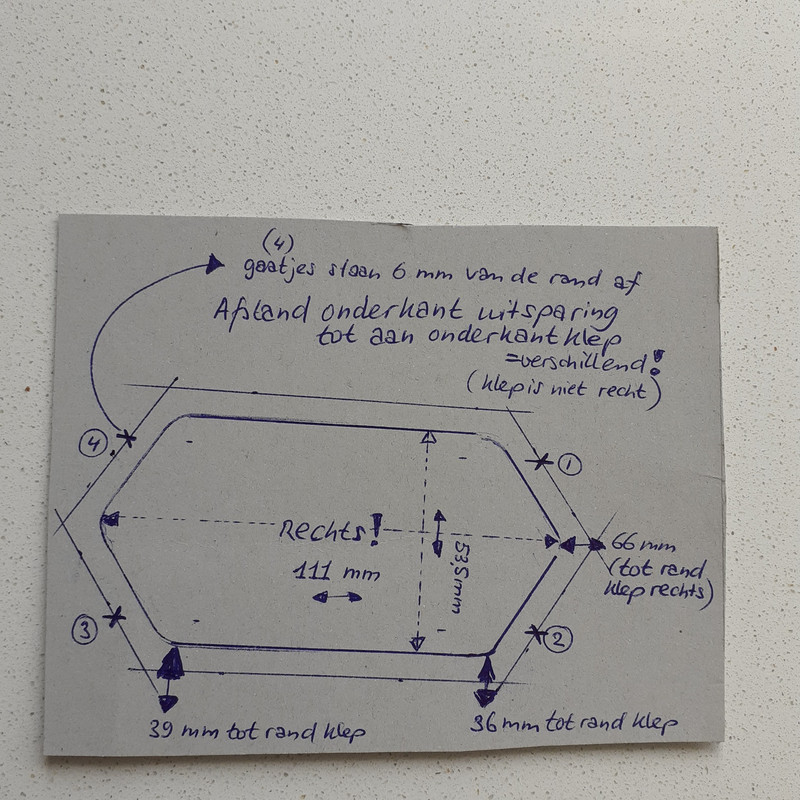 (4)
gaatjes staan 6 mm van de rand af
Afstand onderkant uitsparing
tot aan onderkant klep
=verschillend!
(klep is niet recht)
4
1
Rechts!
111 mm
53,5mm
66 mm
(tot rand
klep rechts)
3
2
39 mm tot rand klep
36 mm tot rand klep